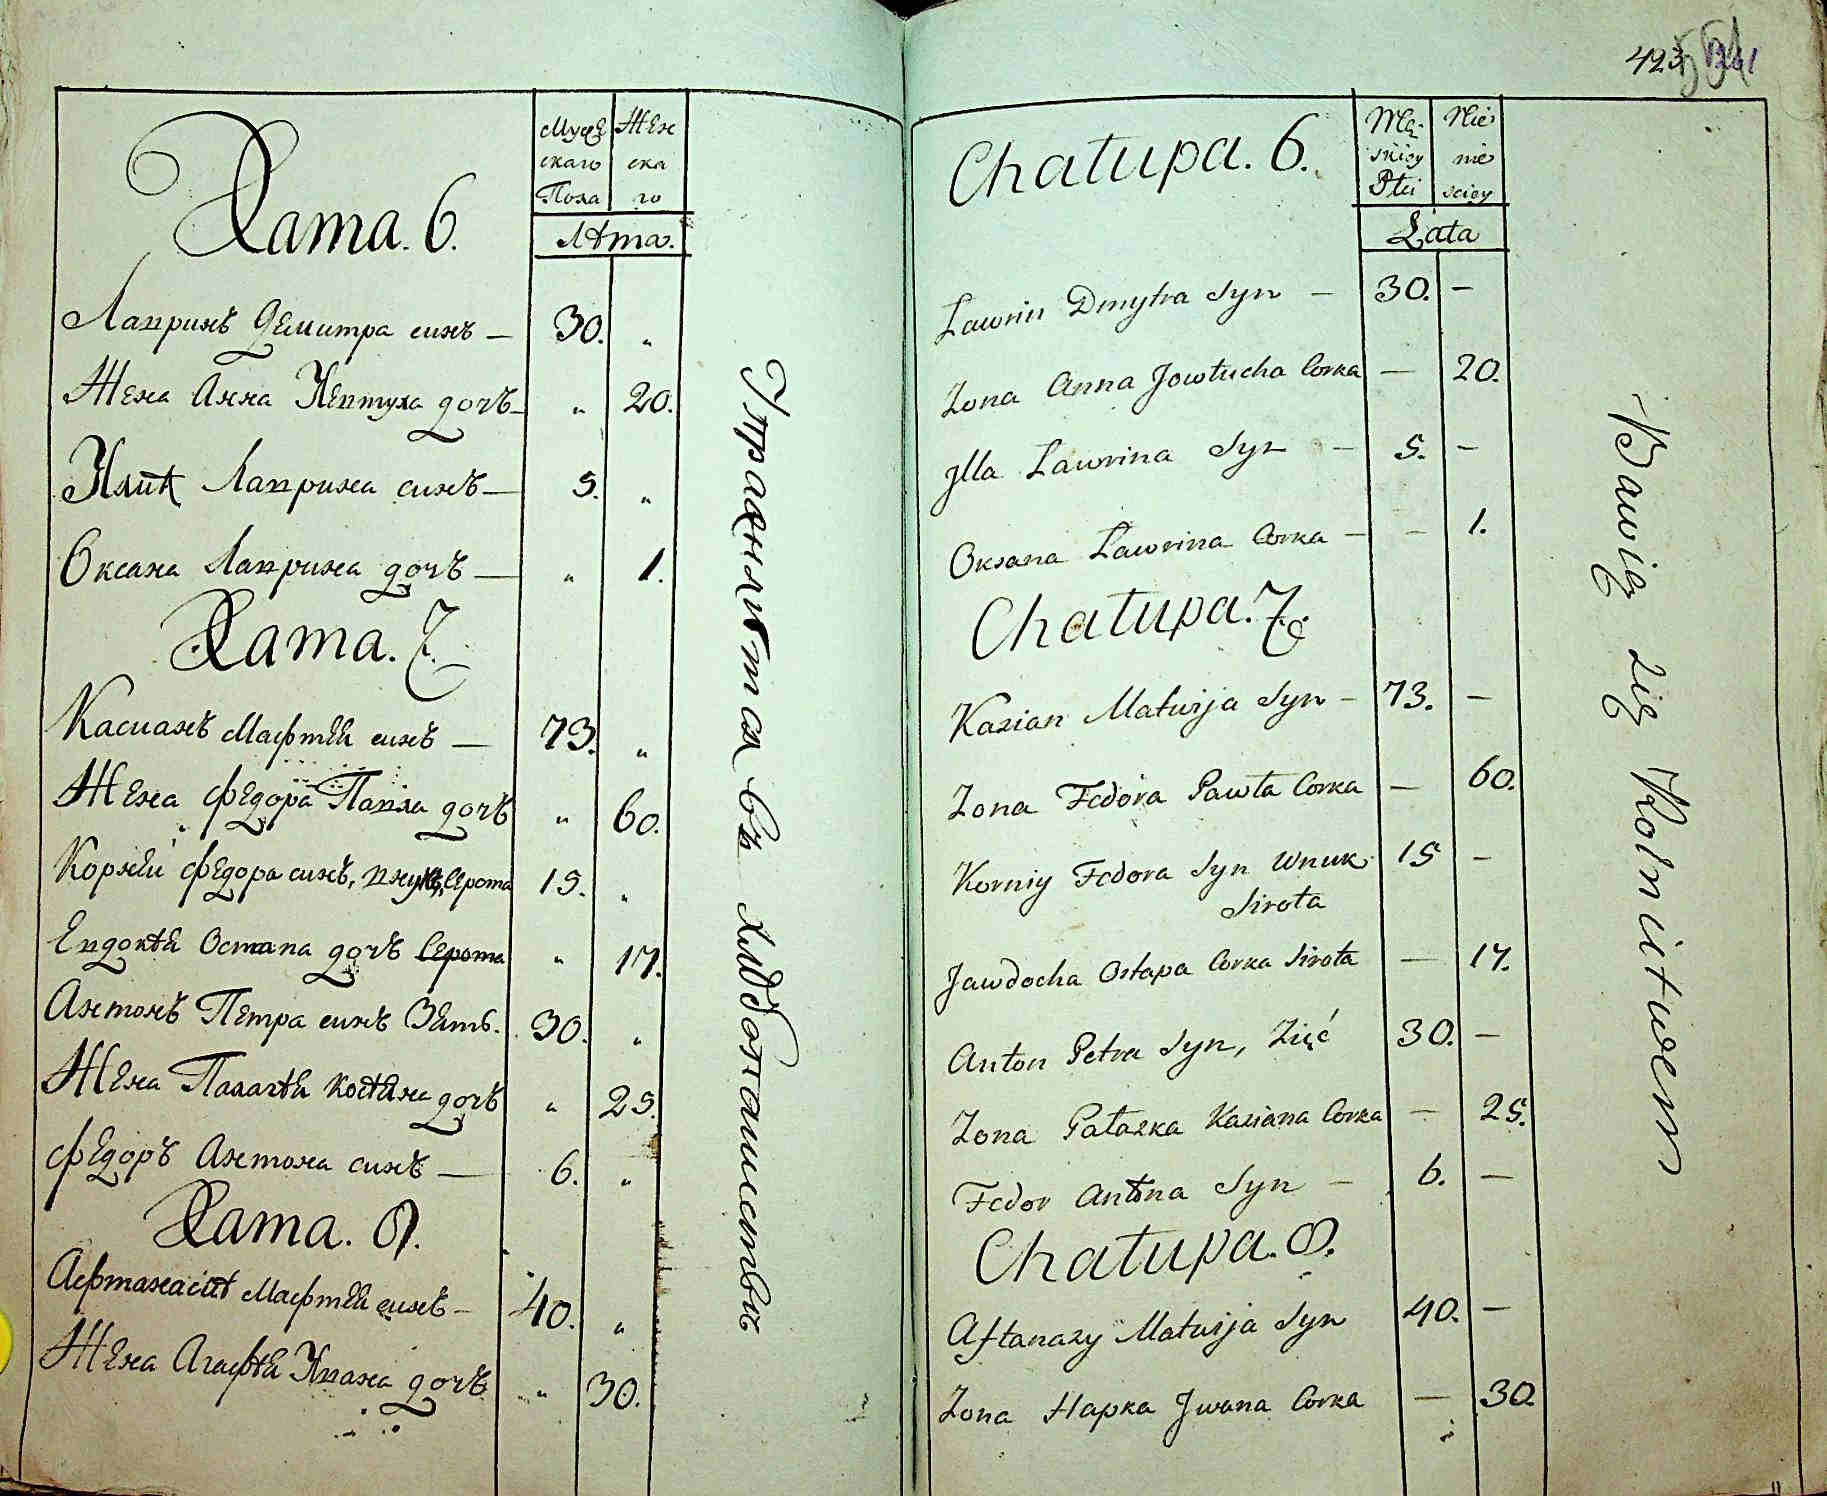 Хата. 6.
Мужескаго Пола
Женскаго
Лѣта.
Лавринъ Демитра синъ — 30. „
Жена Анна Иевтуха дочъ — „ 20.
Илиѣ Лаврина синъ — 5. „
Оксана Лаврина дочъ — „ 1.
Хата. 7.
Касианъ Мафтѣи синъ — 73. „
Жена Федора Павла дочъ „ 60.
Корнѣи Федора синъ, внукъ, Серота 15. „
Евдокѣи Остапа дочъ Серота „ 17.
Антонъ Петра синъ Зять. 30. „
Жена Палагѣи Косѣяна дочъ „ 25.
Федоръ Антона синъ — 6. „
Хата. 8.
Афтанасиѣ Мафтѣи синъ — 40. „
Жена Агафѣи Ивана дочъ „ 30.
Упражняѣтся въ хлѣбопашествѣ
423
Chałupa. 6.
Męskiey Płci
Nieniesciey
Lata
Lawrin Dmytra Syn — 30. —
Zona Anna Jowtucha Corka — 20.
Jlla Lawrina Syn — 5. —
Oxana Lawrina Corka — — 1.
Chałupa. 7.
Kasian Matwija Syn — 73. —
Zona Fedora Pawła Corka — 60.
Korniy Fedora Syn Wnuk 15 —
Sirota
Jawdocha Ostapa Corka Sirota — 17.
Anton Petra Syn, Zięć 30. —
Zona Pałaszka Kasiana Corka — 25.
Fedor Antona Syn — 6. —
Chałupa. 8.
Aftanazy Matwija Syn 40. —
Zona Hapka Jwana Corka — 30.
Bawią się Rolnictwem